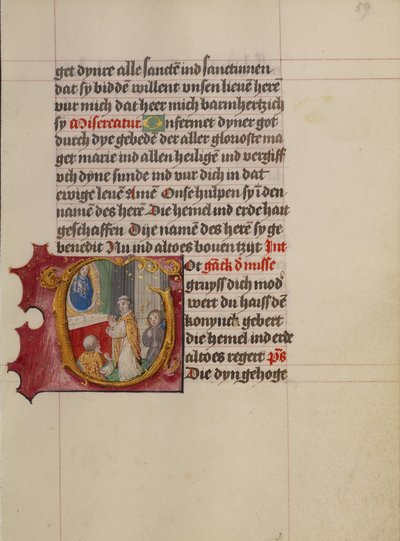 59
get dynre alle sanctē ind sanctumen
dat sy biddē willent vnsen lieuē herē
vur mich dat heer mich barmhertzich
sy Misereatur Onfermet dyner got
durch dye gebede der aller glorioste ma
ger marie ind allen heiligē ind vergiff
vch dyne sunde ind vur dich in dat
ewige leuē Amē Onse hulpen sy i den
namē des herē Die hemel ind erde hait
geschaffen Dye namē des herē sy ge
benedit Nu ind altoes bouen tzijt Int
Ot gāck d misse
gruyss dich mod
wert du haiss dē
konynck gebert
die hemel ind erde
altoes regert ps
Die dyn gehoge